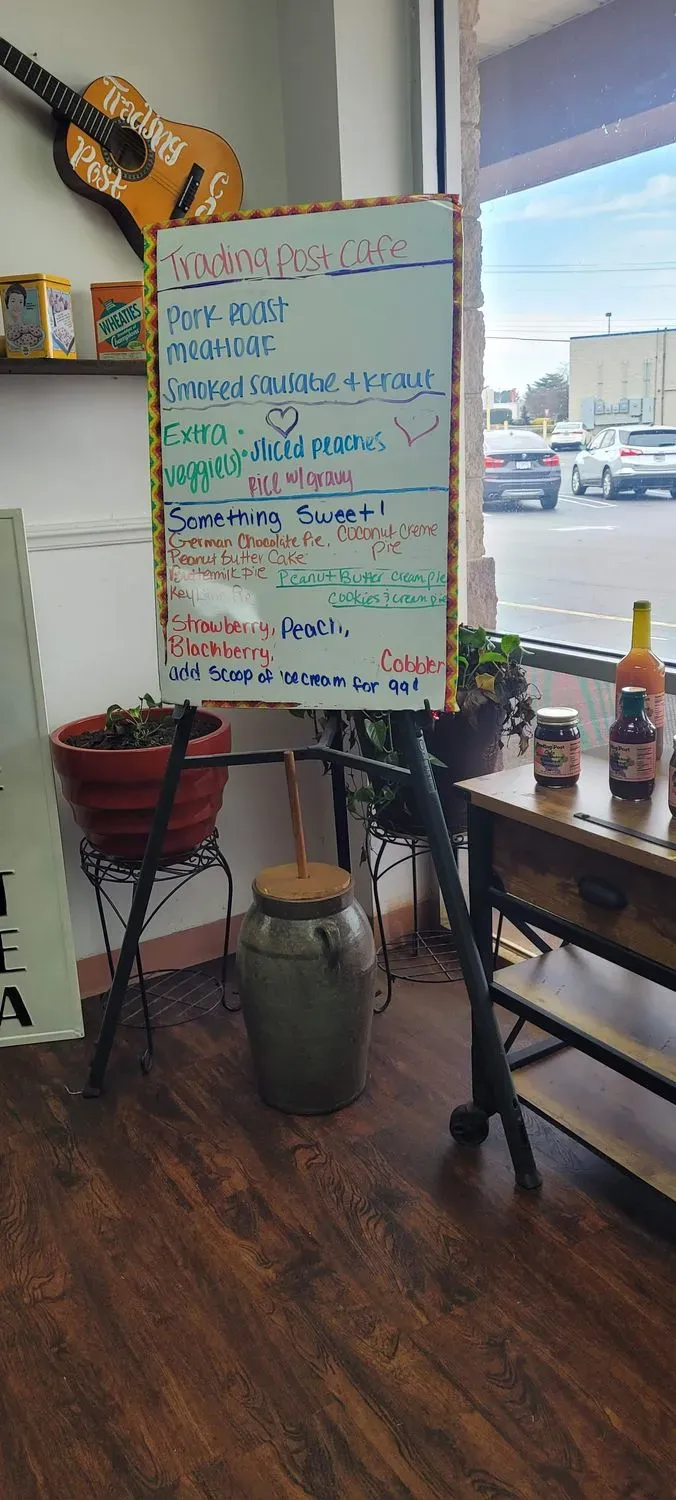 Trading Post
WHEATIES
Trading Post Cafe
Pork Roast
meatloaf
Smoked sausage + kraut
Extra
veggie(s)
Sliced peaches
Rice w/gravy
Something Sweet!
German Chocolate Pie, Coconut Creme Pie
Peanut Butter Cake
Buttermilk Pie
Peanut Butter cream pie
Key Lime Pie
cookies & cream pie
Strawberry, Peach,
Blackberry,
Cobbler
add scoop of ice cream for 99¢
E
A